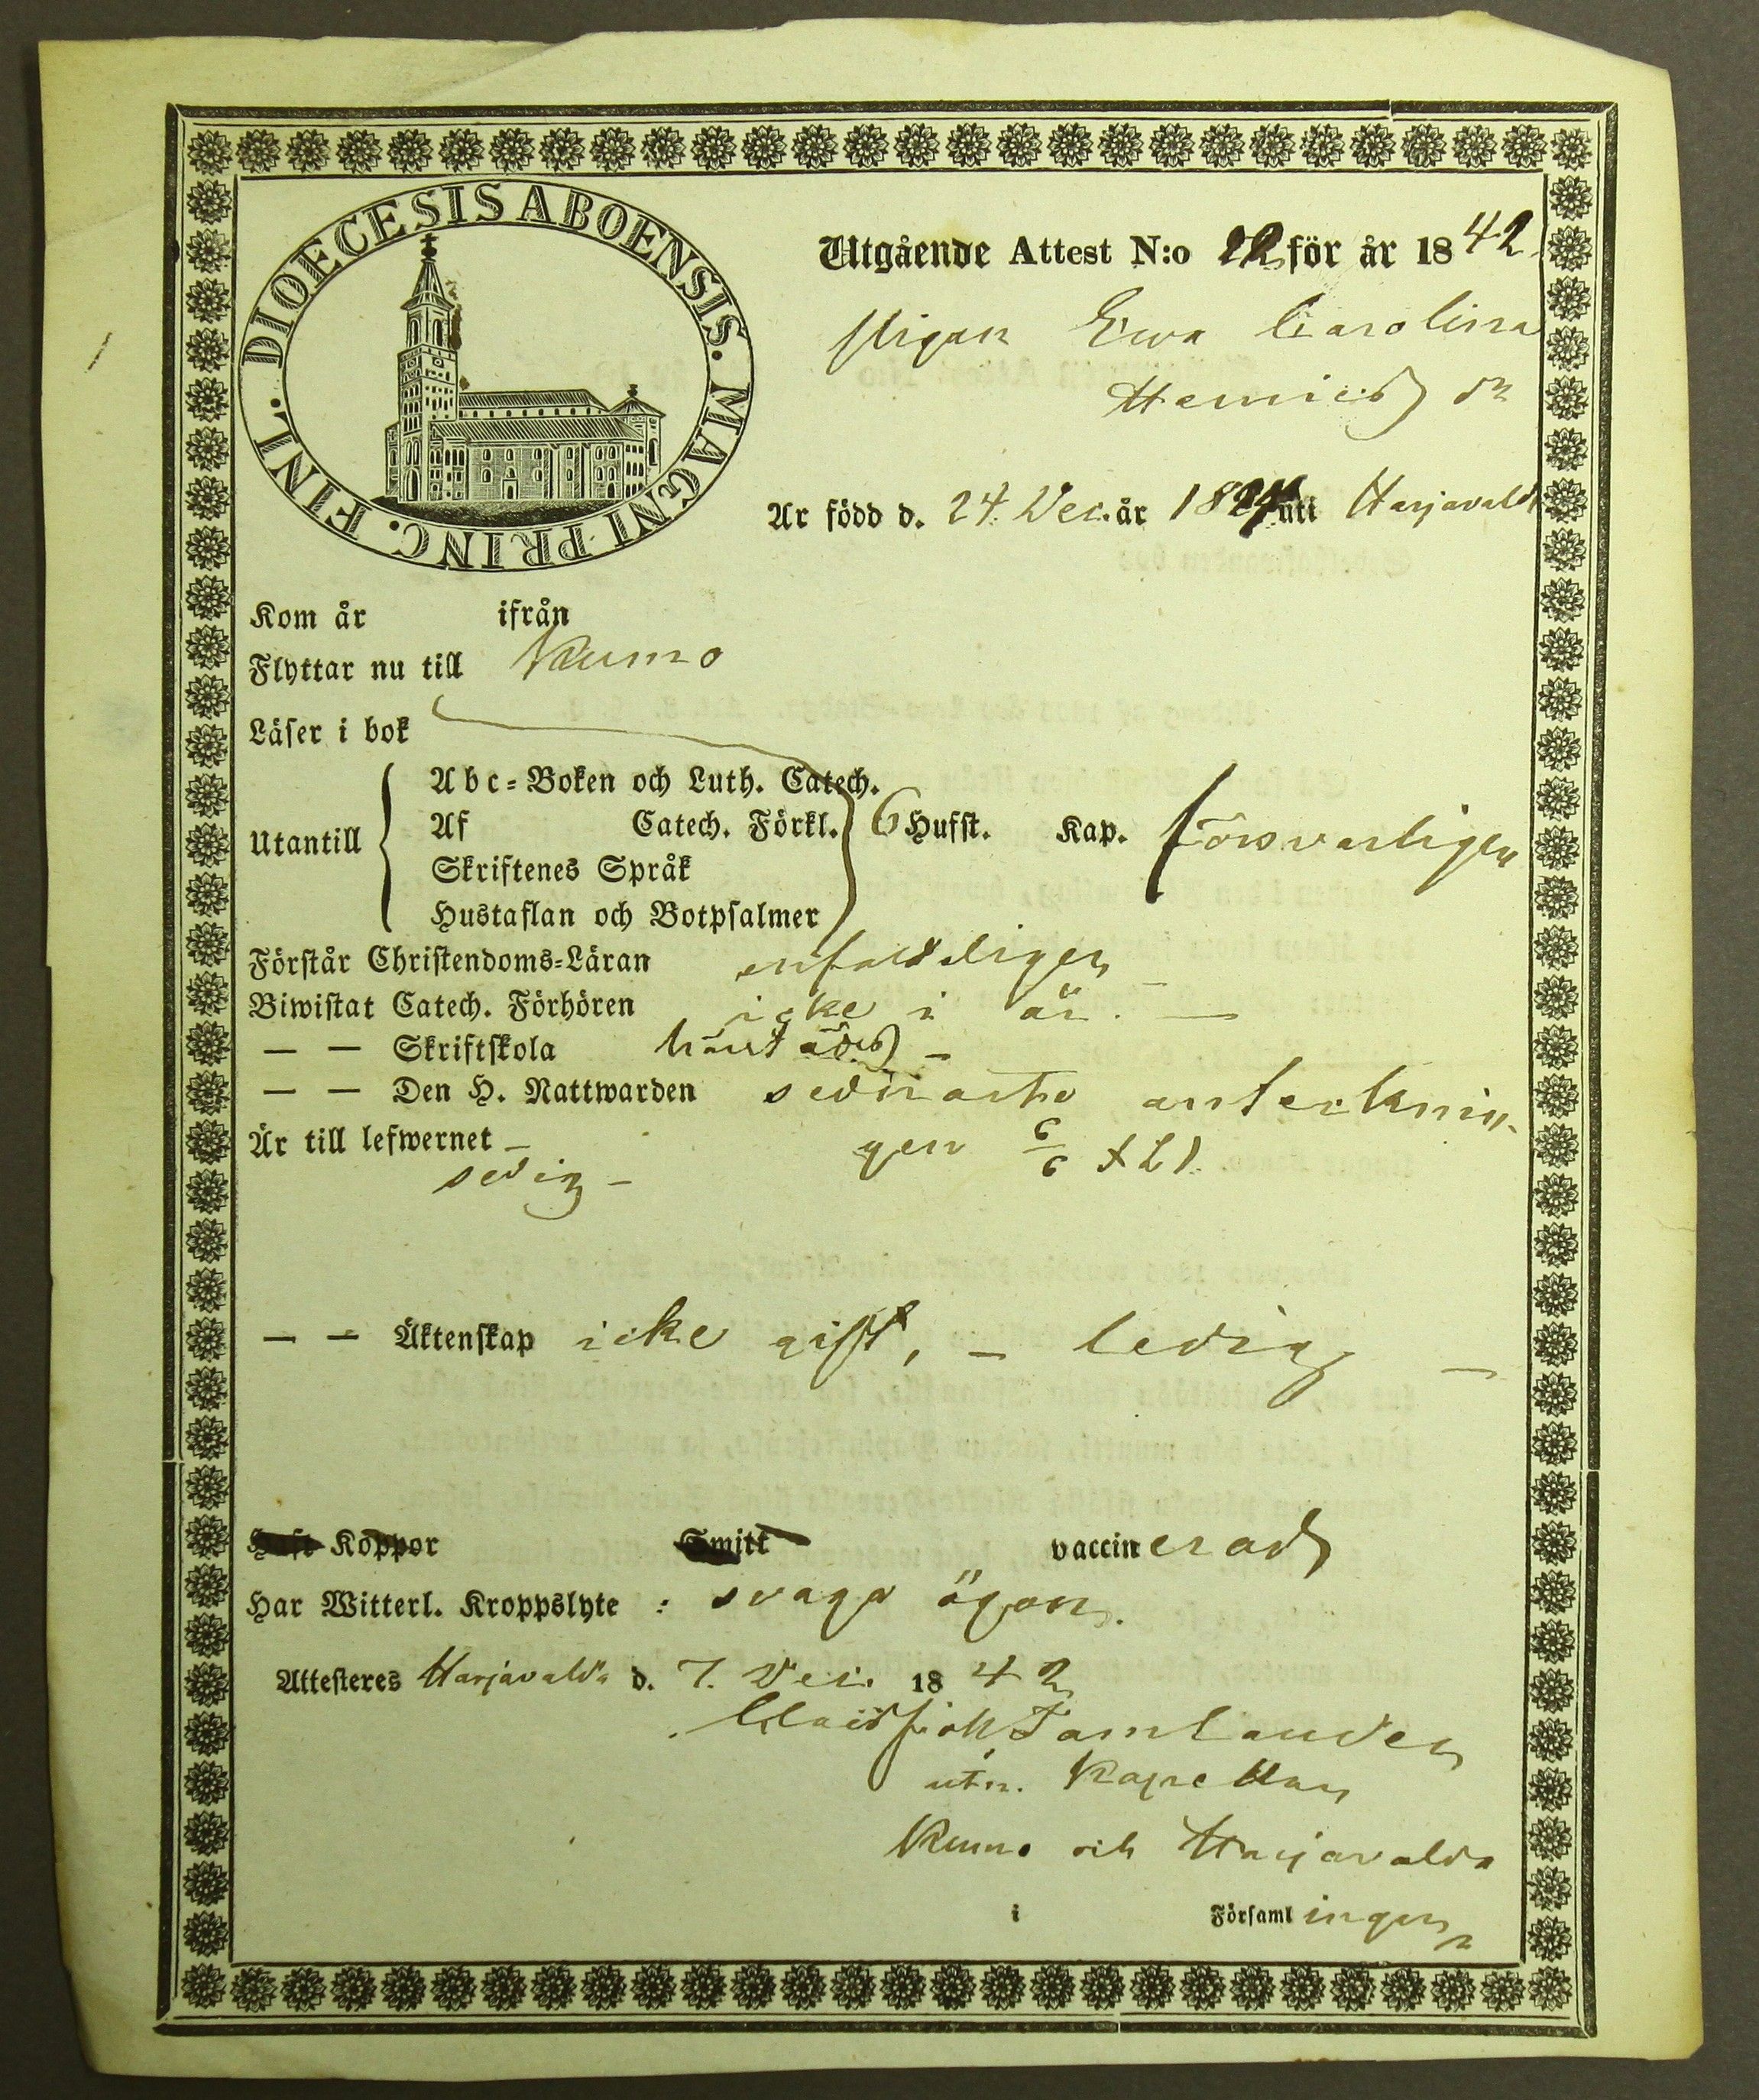 DIOECESIS ABOENSIS. MAGNI PRINC. FINL.
Utgående Attest N:o 22 för år 1842
pigan Ewa Carolina
Henricsdr
Är född d. 24. Dec. år 1824 uti Harjavalda
Kom år ifrån
Flyttar nu till Kumo
Läser i bok
Abc-Boken och Luth. Catech.
Utantill Af Catech. Förkl. 6 Hufst. Kap. försvarligen
Skriftenes Språk
Hustaflan och Botpsalmer
Förstår Christendoms-Läran enfaldeligen
Biwistat Catech. Förhören icke i år. —
— — Skriftskola
— — Den H. Nattwarden sednaste antecknin-
gen 6/6
Är till lefwernet —
sedig —
— — Äktenskap icke gift, — ledig —
Haft Koppor Smitt vaccinerad
Har Witterl. Kroppslyte : svaga ögon.
Attesteres Harjavalda d. 7. Dec. 1842
Tamlander
Kapellan
Kumo och Harjavalda
i Församlingen